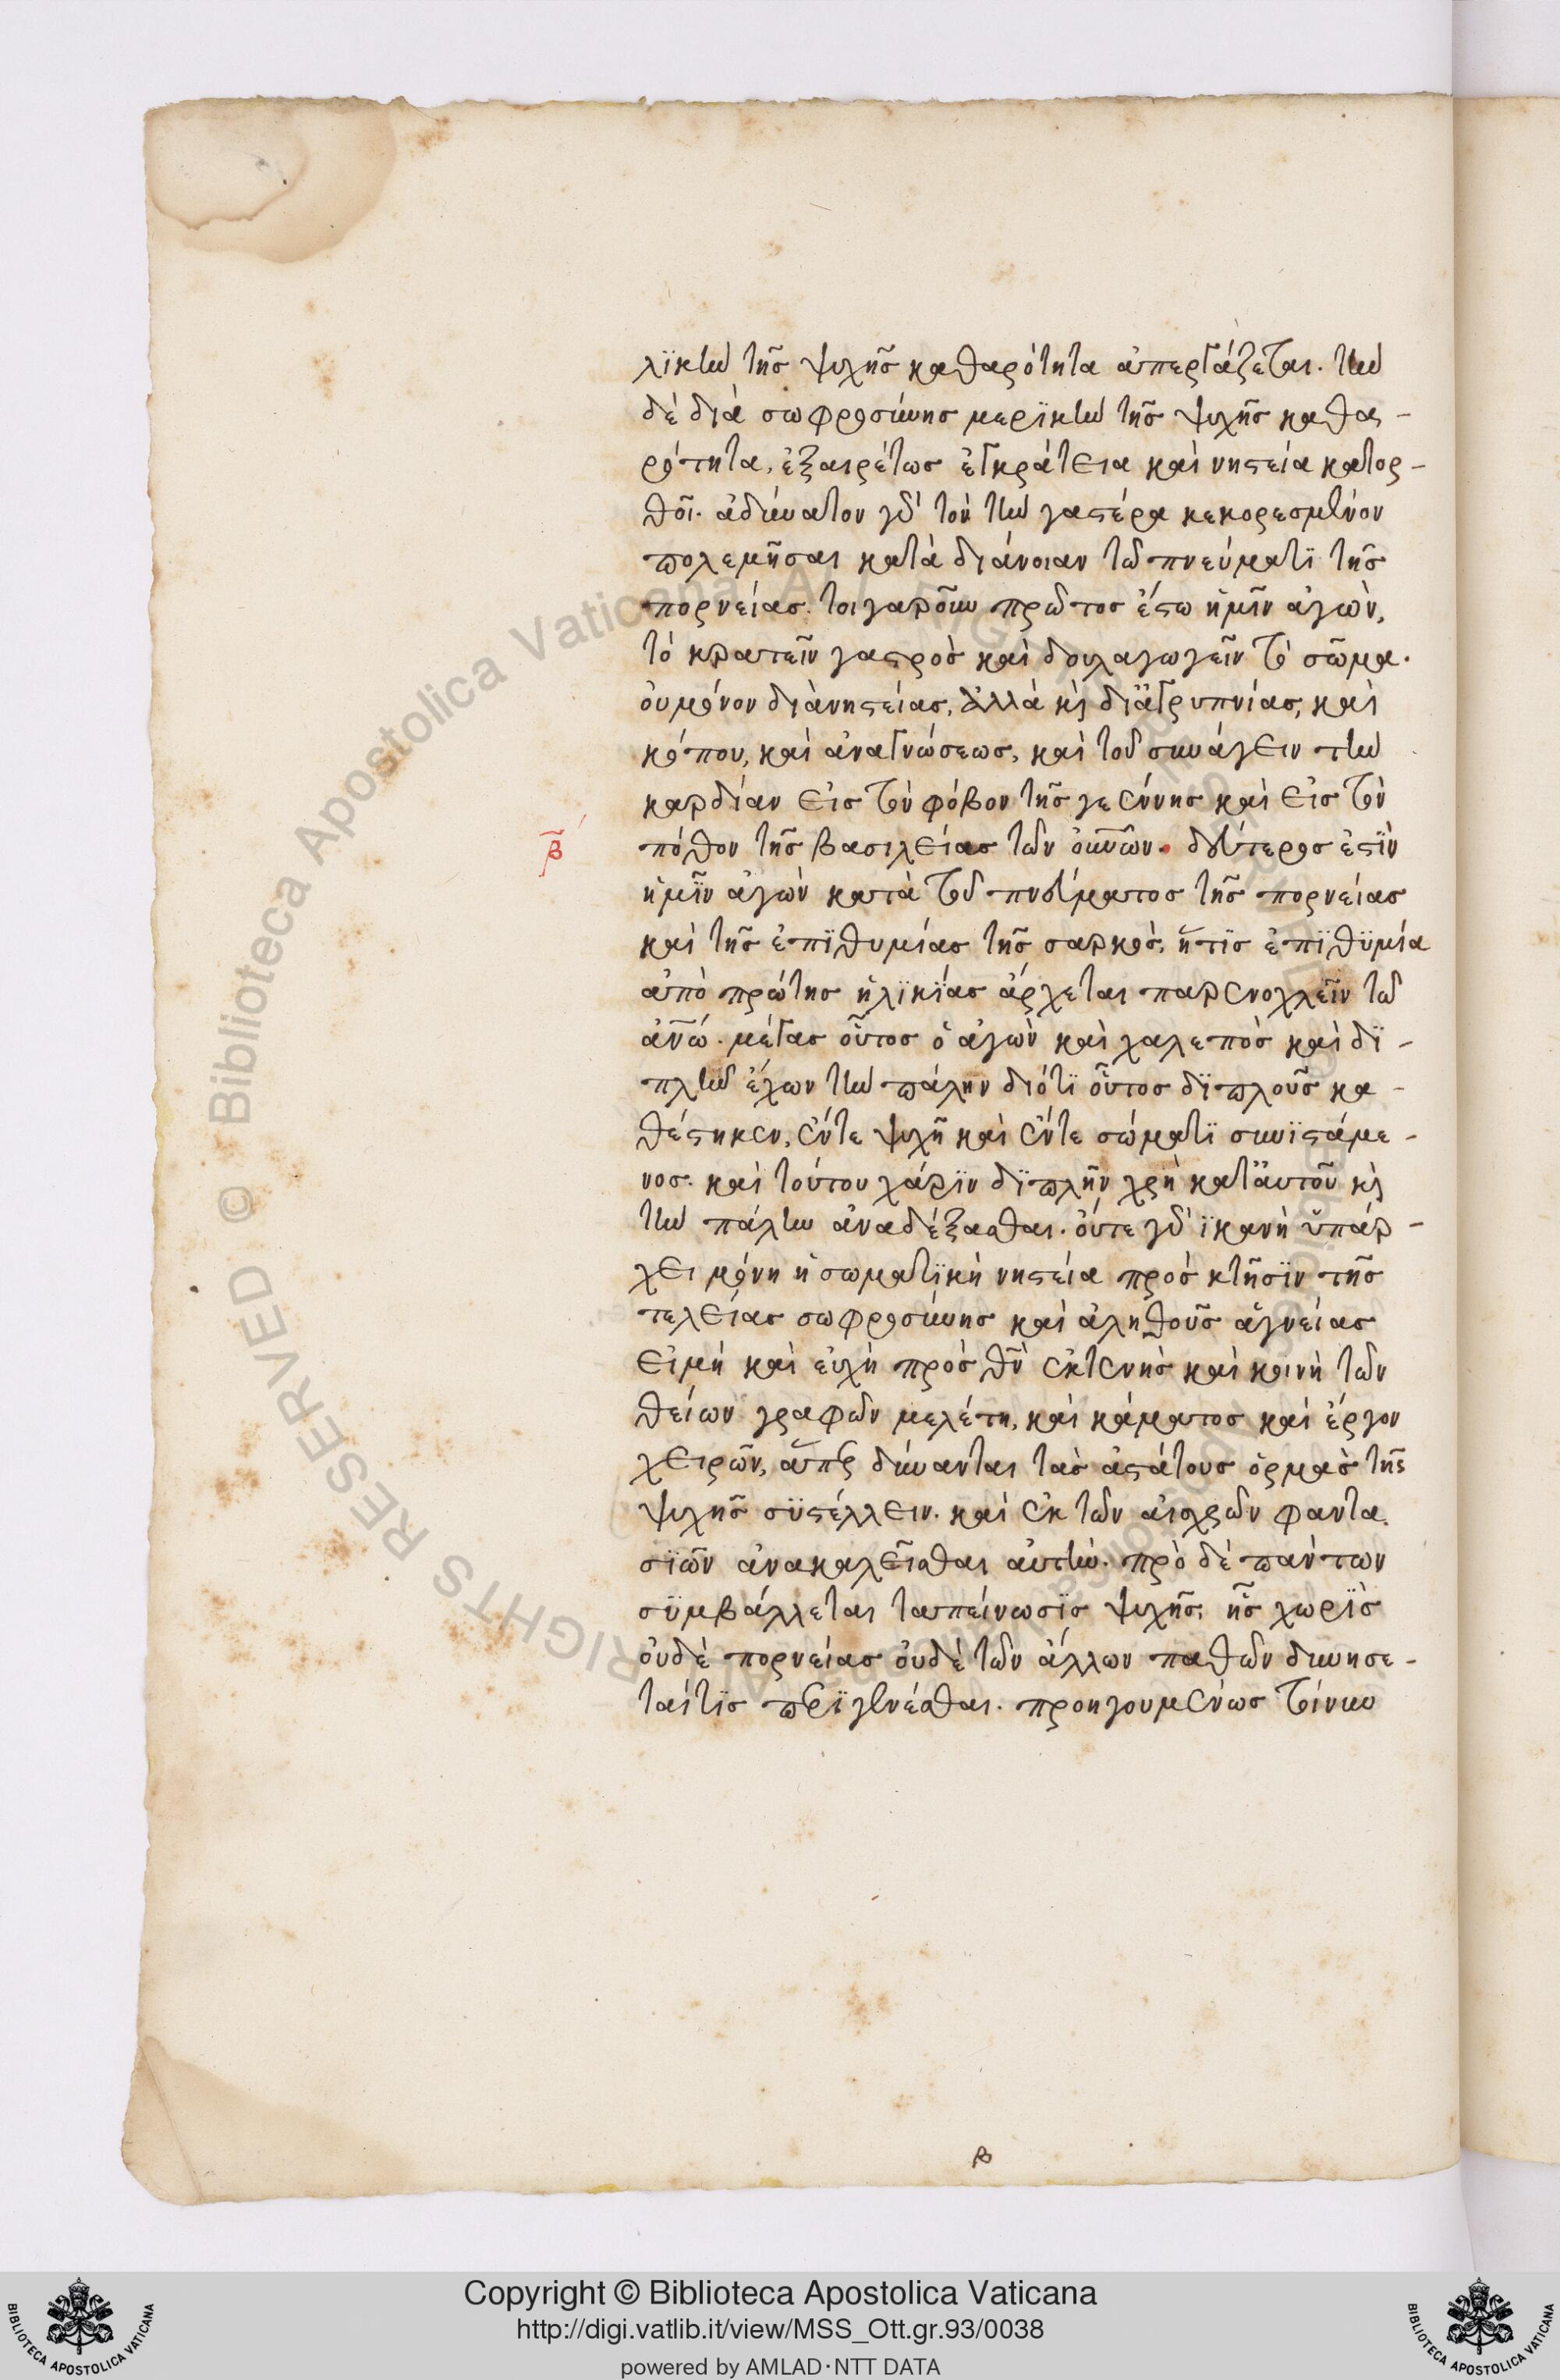 λϊκὴν τῆς ψυχῆς καθαρότητα ἀπεργάζεται. τὴν
δὲ διὰ σωφροσύνης μερϊκὴν τῆς ψυχῆς καθα-
ρότητα, ἐξαιρέτως ἐγκράτεια καὶ νηστεία κατορ-
θοῖ. ἀδύνατον γὰρ τὸν τὴν γαστέρα κεκορεσμένον
πολεμῆσαι κατὰ διάνοιαν τῶ πνεύματϊ τῆς
πορνείας. τοιγαροῦν πρῶτος ἔστω ἡμῖν ἀγὼν,
τὸ κρατεῖν γαστρὸς καὶ δουλαγωγεῖν τὸ σῶμα.
οὐ μόνον διὰ νηστείας, ἀλλὰ κὶ δϊ ἀγρυπνίας, καὶ
κόπου, καὶ ἀναγνώσεως, καὶ τοῦ συνάγειν τὴν
καρδίαν εἰς τὸν φόβον τῆς γεέννης καὶ εἰς τὸν
πόθον τῆς βασιλείας τῶν οὐνῶν. δεύτερος ἐστὶν
β
ἡμῖν ἀγὼν κατὰ τοῦ πνεύματος τῆς πορνείας
καὶ τῆς ἐπϊθυμίας τῆς σαρκὸς, ἥτϊς ἐπϊθϋμία
ἀπὸ πρώτης ἡλϊκίας ἄρχεται παρενοχλεῖν τῶ
ἀνῶ. μέγας οὗτος ὁ ἀγὼν καὶ χαλεπὸς καὶ δϊ-
πλῆν ἔχων τὴν πάλην διότϊ οὗτος δϊπλοῦς κα-
θέστηκεν, ἔντε ψυχῆ καὶ ἔντε σώματϊ συνϊστάμε-
νος. καὶ τούτου χάρϊν δϊπλῆν χρὴ κατ' αὐτοῦ κὶ
τὴν πάλην ἀναδέξασθαι. οὔτε γὰρ ϊκανὴ ὑπάρ-
χει μόνη ἡ σωματϊκὴ νηστεία πρὸς κτῆσϊν τῆς
τελείας σωφροσύνης καὶ ἀληθοῦς ἁγνείας
εἰμὴ καὶ εὐχὴ πρὸς θν ἐκτενὴς καὶ κοινὴ τῶν
θείων γραφῶν μελέτη, καὶ κάματος καὶ ἔργον
χειρῶν, ἅπερ δύνανται τὰς ἀστάτους ὁρμὰς τῆς
ψυχῆς σϋστέλλειν. καὶ ἐκ τῶν αἰσχρῶν φαντα
σϊῶν ἀνακαλεῖσθαι αὐτήν. πρὸ δὲ πάντων
σϋμβάλλεται ταπείνωσϊς ψυχῆς, ἧς χωρϊς
οὐδὲ πορνείας οὐδὲ τῶν ἄλλων παθῶν δυνήσε-
ταί τϊς περϊγενέσθαι. προηγουμένως τοίνυν
β
Copyright © Biblioteca Apostolica Vaticana
http://digi.vatlib.it/view/MSS_Ott.gr.93/0038
powered by AMLAD·NTT DATA